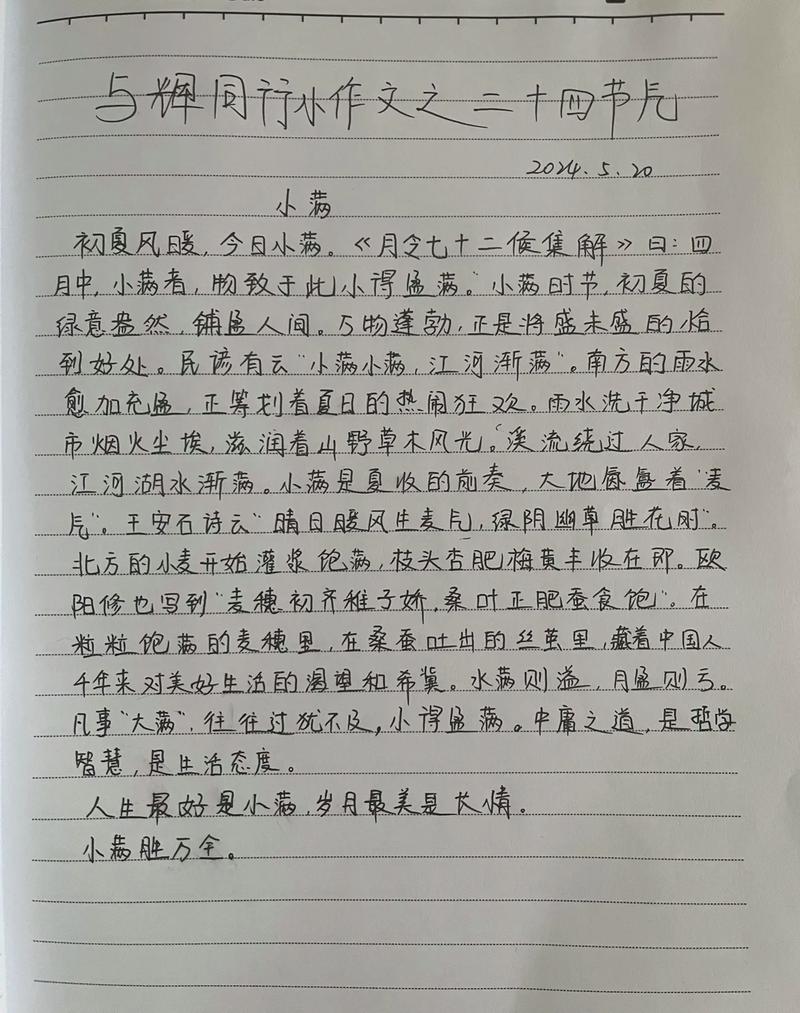 与辉同行小作文之二十四节气
2024.5.20
小满
初夏风暖,今日小满。《月令七十二候集解》曰:四
月中,小满者,物致于此小得盈满。"小满时节,初夏的
绿意盎然,铺盈人间。万物蓬勃,正是将盛未盛的恰
到好处。民谚有云"小满小满,江河渐满"。南方的雨水
愈加充盈,正筹划着夏日的热闹狂欢。雨水洗干净城
市烟火尘埃,滋润着山野草木风光。溪流绕过人家,
江河湖水渐满。小满是夏收的前奏,大地氤氲着"麦
气"。王安石诗云"晴日暖风生麦气,绿阴幽草胜花时"。
北方的小麦开始灌浆饱满,枝头杏肥梅黄丰收在即。欧
阳修也写到"麦穗初齐稚子娇,桑叶正肥蚕食饱"。在
粒粒饱满的麦穗里,在桑蚕吐出的丝茧里,藏着中国人
千年来对美好生活的渴望和希冀。水满则溢,月盈则亏。
凡事"大满",往往过犹不及,小得盈满。中庸之道,是哲学
智慧,是生活态度。
人生最好是小满,岁月最美是长情。
小满胜万全。